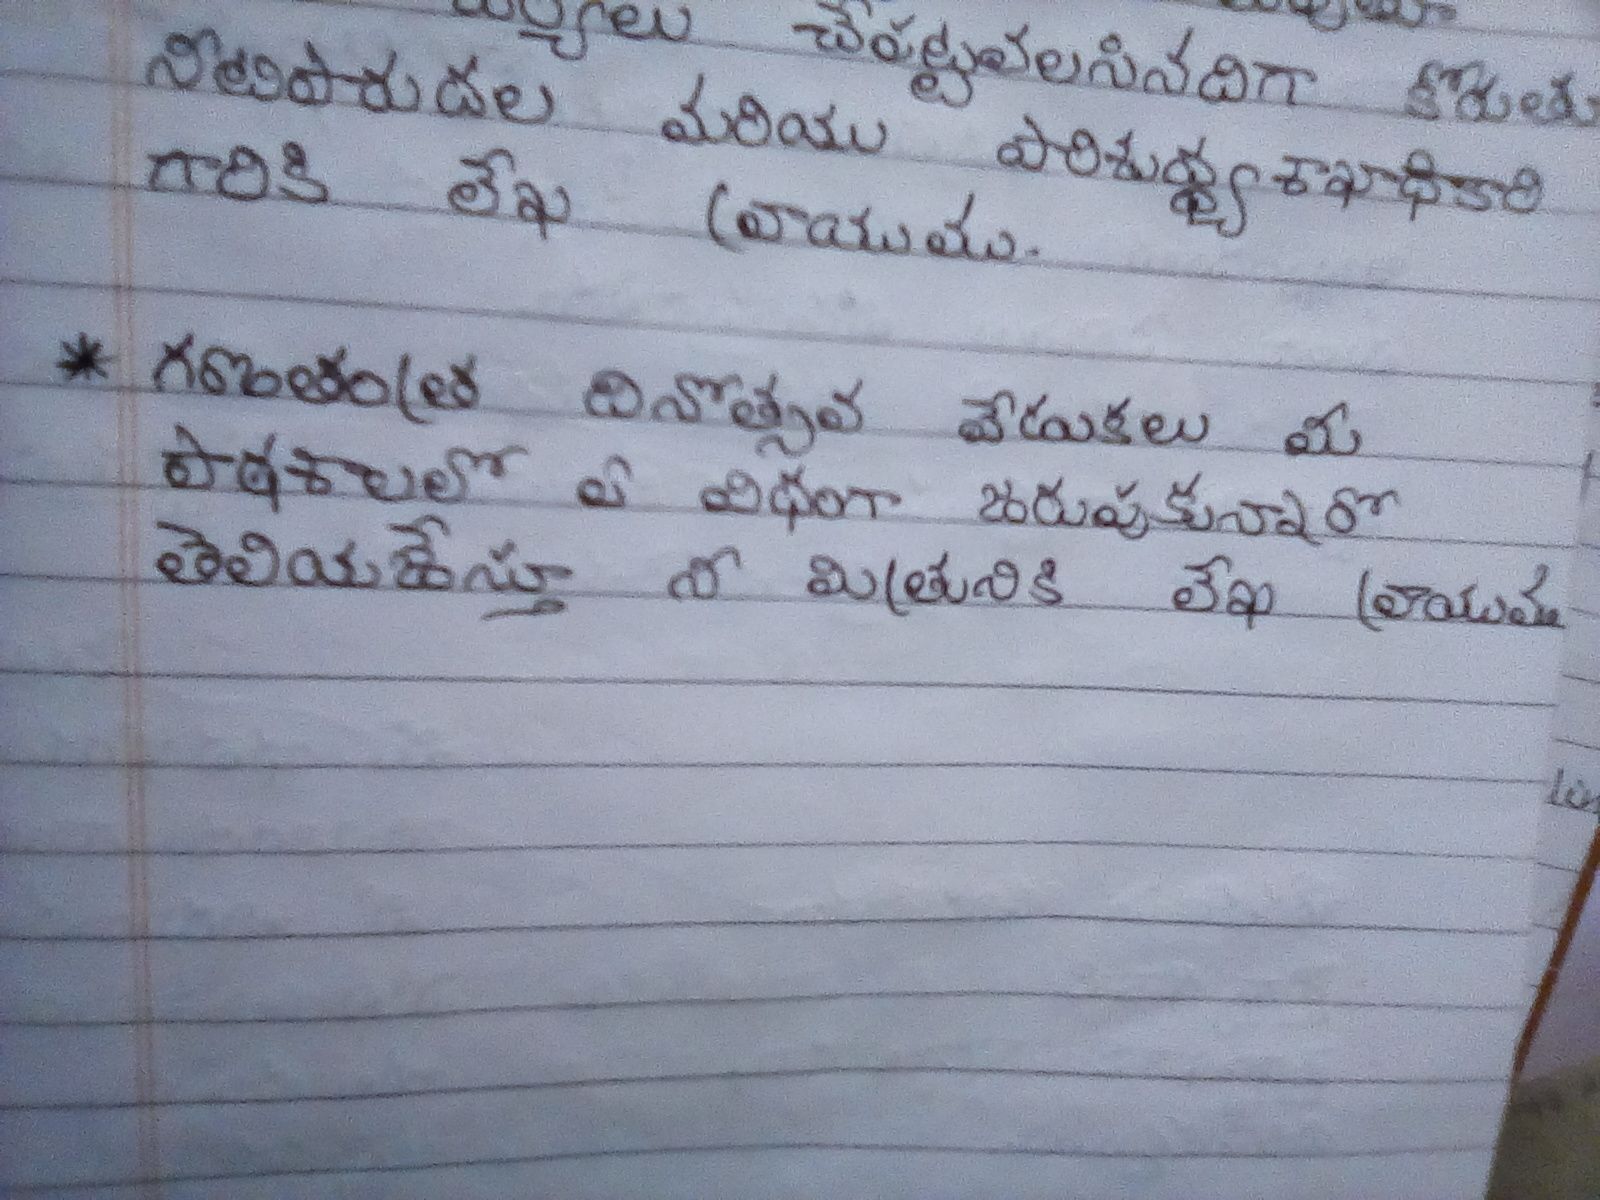 చర్యలు చేపట్టవలసినదిగా కోరుతు
నీటిపారుదల మరియు పారిశుధ్య శాఖాధికారి
గారికి లేఖ వ్రాయుము.
* గణతంత్ర దినోత్సవ వేడుకలు మీ
పాఠశాలలో ఏ విధంగా జరుపుకున్నారో
తెలియజేస్తూ నీ మిత్రునికి లేఖ వ్రాయుము